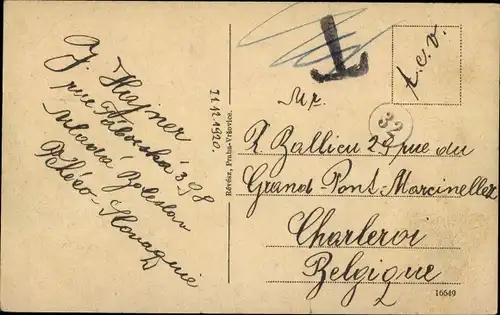 J. Hajner
rue
398
Mladá Boleslav
Tchéco-Slovaquie
21.12.1920.
Révész, Praha-Vršovice.
T
t.c.v.
32
Mr.
R Ballieu 29 rue du
Grand-Pont-Marcinellez
Charleroi
Belgique
16649